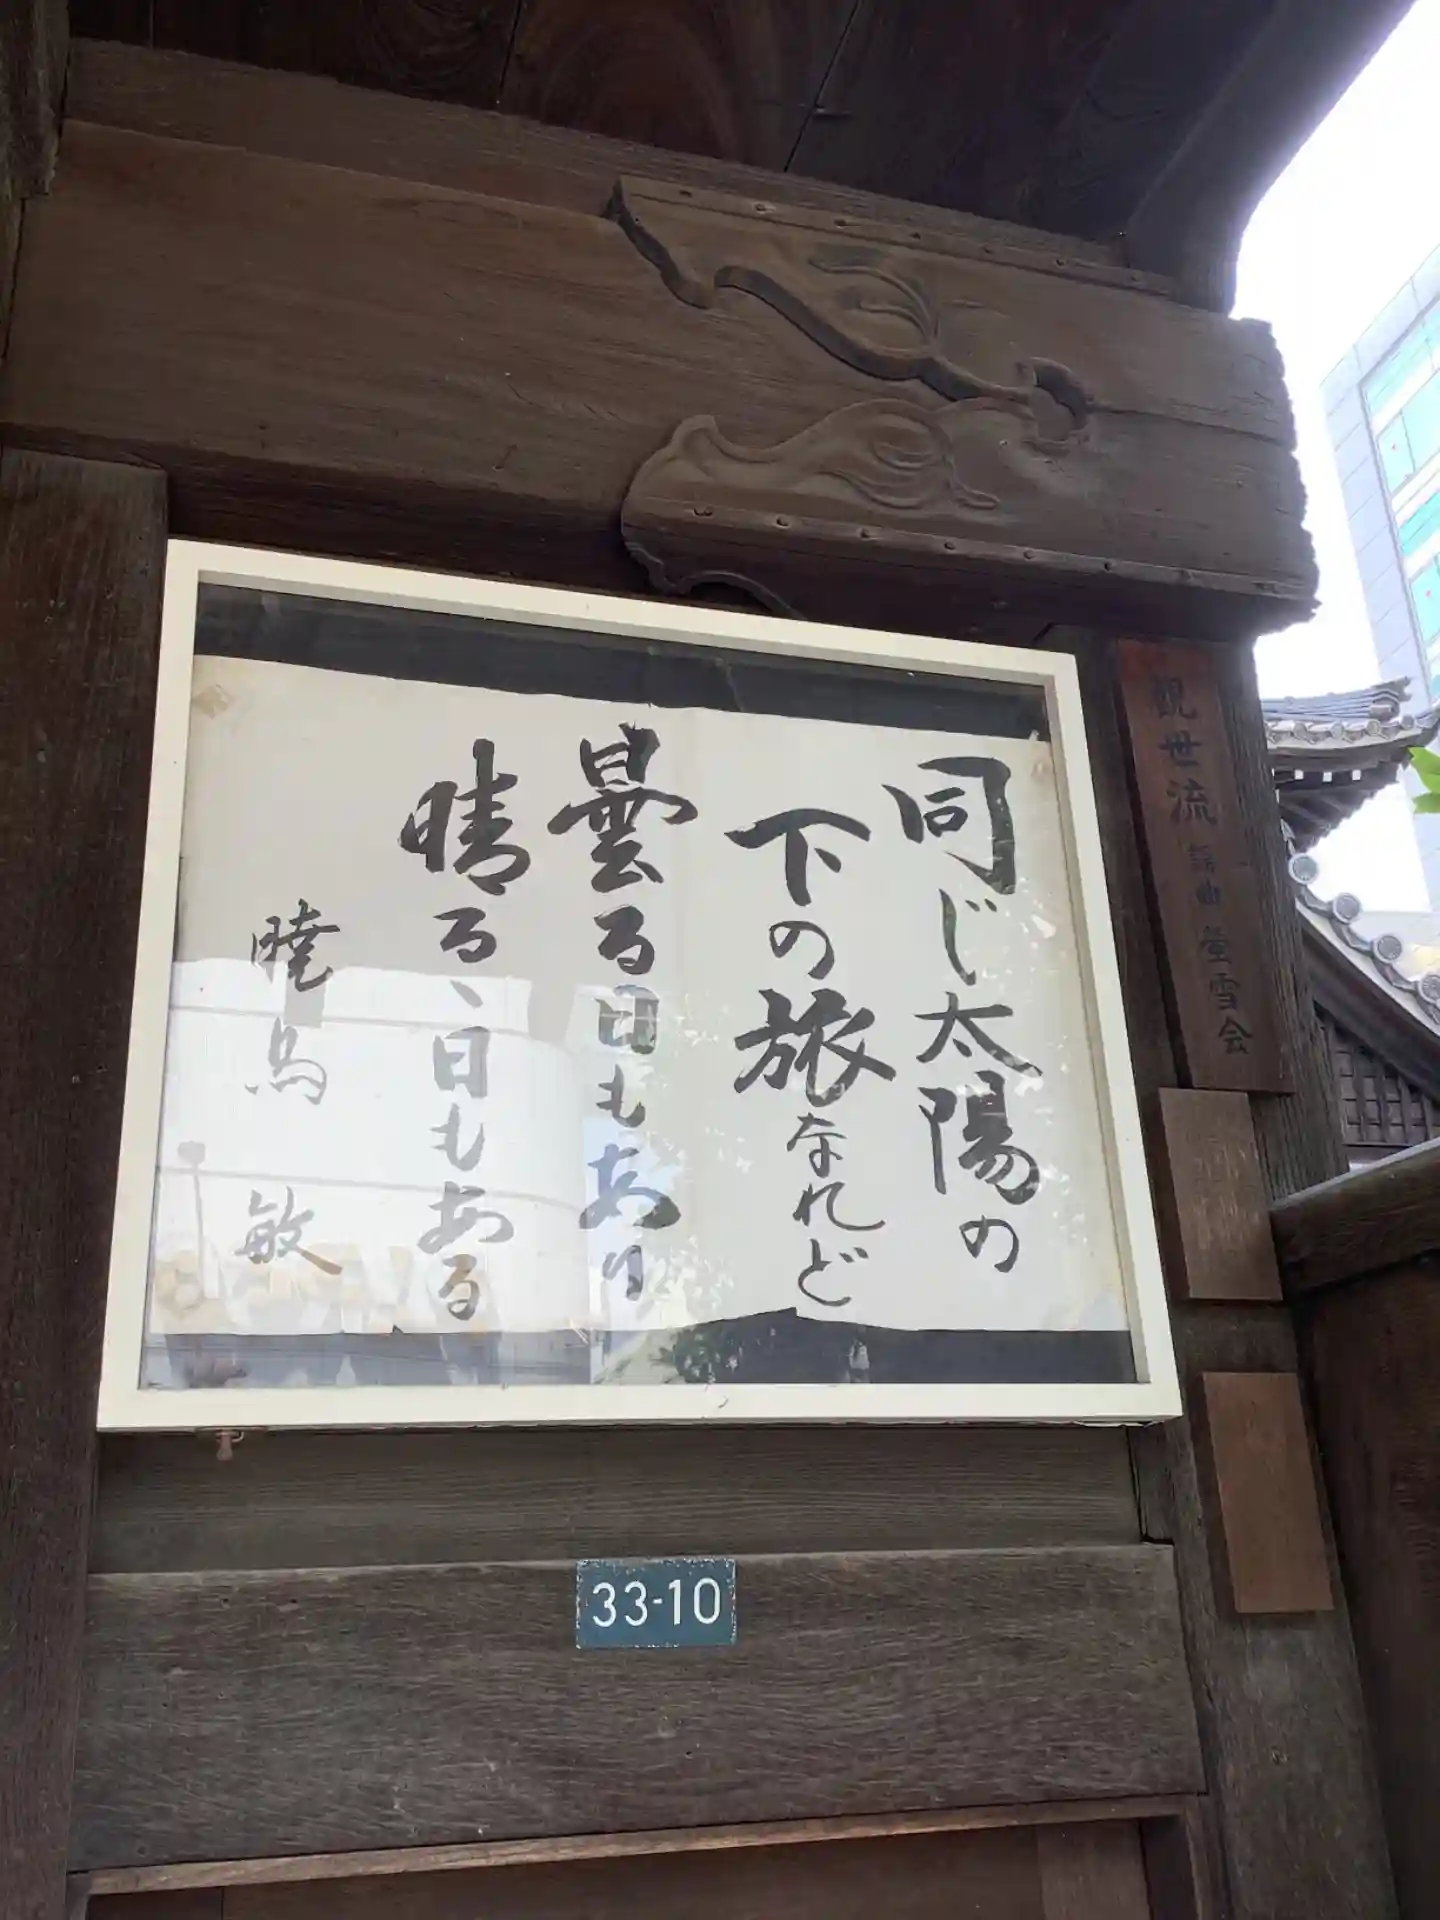 同じ太陽の
下の旅なれど
曇る日もあり
晴るゝ日もある
暁烏 敏
観世流 謡曲 蛍雪会
33-10